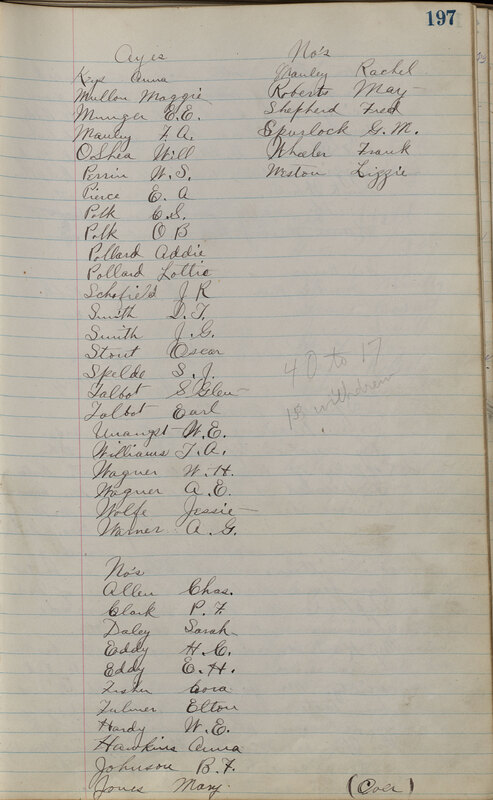 197
Ayes
Keys Anna
Mullon Maggie
Munger E.E.
Manley F. A.
OShea Will
Perrin W. S.
Pierce E. A
Polk C. S.
Polk O B
Pollard Addie
Pollard Lottie
Schofield J R
Smith D. F.
Smith J. G.
Stout Oscar
Spelde S. J.
Talbot S Glen
Talbot Earl
Unangst W. E.
Williams T. A.
Wagner W. H.
Wagner A. E.
Wolfe Jessie
Warner A. G.
No's
Allen Chas.
Clark P. F.
Daley Sarah
Eddy H. C.
Eddy E. H.
Fisher Cora
Fulmer Elton
Hardy W. E.
Hawkins Anna
Johnson B. F.
Jones Mary.
No's
Manley Rachel
Roberts May
Shepherd Fred
Spurlock G. M.
Wheeler Frank
Weston Lizzie
40 to 17
withdrew
(Over)